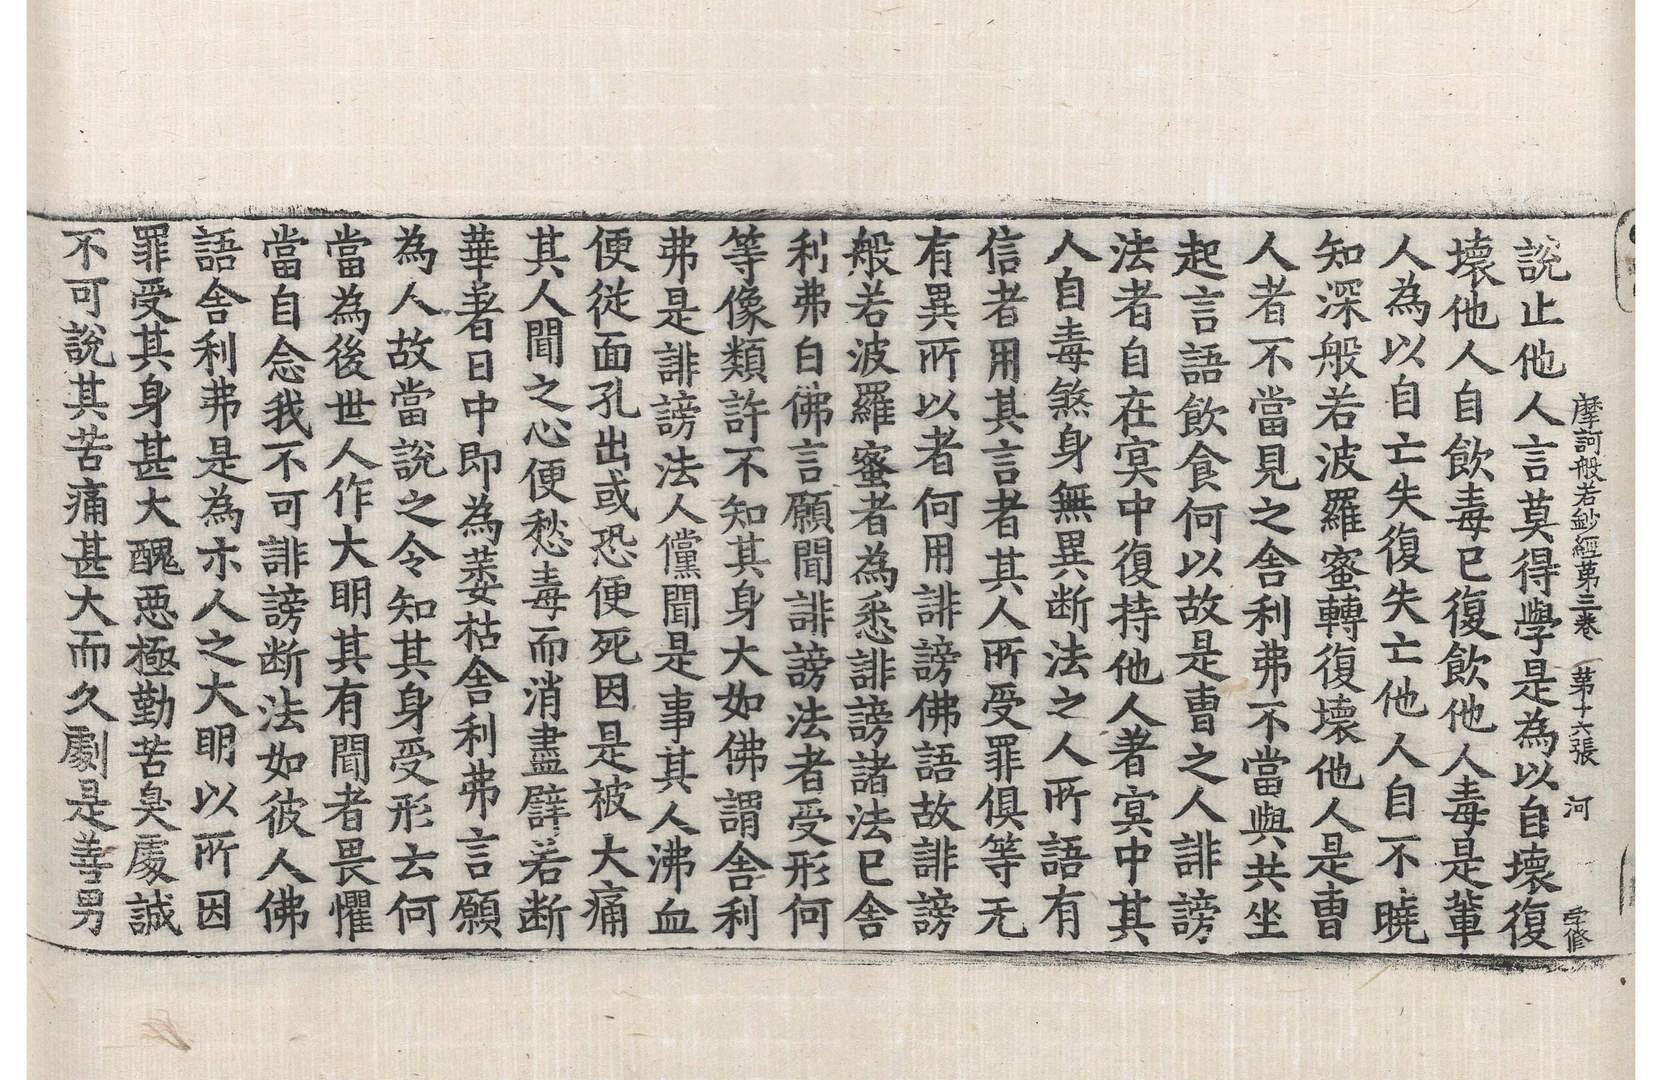 摩訶般若鈔經第三卷 第十六張 河
説止他人言莫得學是為以自壞復
壞他人自飲毒已復飲他人毒是輩
人為以自亡失復失亡他人自不曉
知深般若波羅蜜轉復壞他人是曹
人者不當見之舍利弗不當與共坐
起言語飲食何以故是曹之人誹謗
法者自在冥中復持他人著冥中其
人自毒煞身無異断法之人所語有
信者用其言者其人所受罪俱等无
有異所以者何用誹謗佛語故誹謗
般若波羅蜜者為悉誹謗諸法已舍
利弗白佛言願聞誹謗法者受形何
等像類許不知其身大如佛謂舍利
弗是誹謗法人儻聞是事其人沸血
便從面孔出或恐便死因是被大痛
其人聞之心便愁毒而消盡譬若断
華著日中即為萎枯舍利弗言願
為人故當說之令知其身受形云何
當為後世人作大明其有聞者畏懼
當自念我不可誹謗断法如彼人佛
語舍利弗是為示人之大明以所因
罪受其身甚大醜惡極勤苦臭處誠
不可說其苦痛甚大而久劇是善男